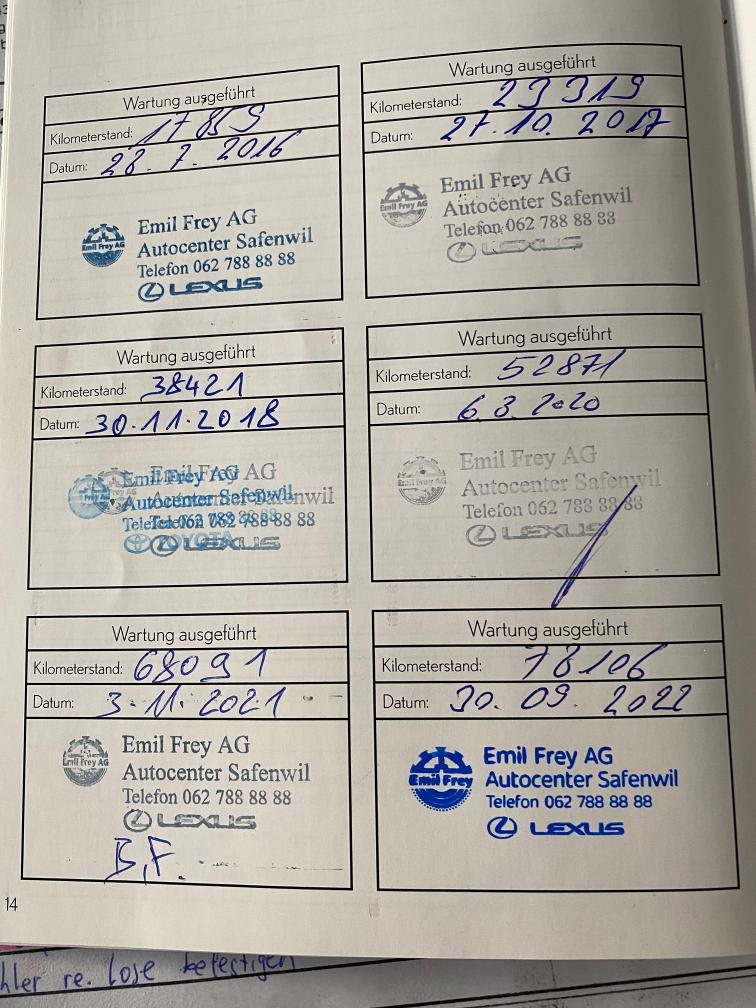 Wartung ausgeführt
Kilometerstand: 17859
Datum: 28.7.2016
Emil Frey AG
Emil Frey AG
Autocenter Safenwil
Telefon 062 788 88 88
LEXUS
Wartung ausgeführt
Kilometerstand: 29319
Datum: 27.10.2017
Emil Frey AG
Emil Frey AG
Autocenter Safenwil
Telefon 062 788 88 88
LEXUS
Wartung ausgeführt
Kilometerstand: 38421
Datum: 30.11.2018
Emil Frey AG
Autocenter Safenwil
Telefon 062 788 88 88
TOYOTA
LEXUS
Wartung ausgeführt
Kilometerstand: 52871
Datum: 6.3.2020
Emil Frey AG
Autocenter Safenwil
Telefon 062 788 88 88
LEXUS
Wartung ausgeführt
Kilometerstand: 68091
Datum: 3.11.2021
Emil Frey AG
Emil Frey AG
Autocenter Safenwil
Telefon 062 788 88 88
LEXUS
B.F.
Wartung ausgeführt
Kilometerstand: 78106
Datum: 30.09.2022
Emil Frey
Emil Frey AG
Autocenter Safenwil
Telefon 062 788 88 88
LEXUS
14
hler re. lose befestigen